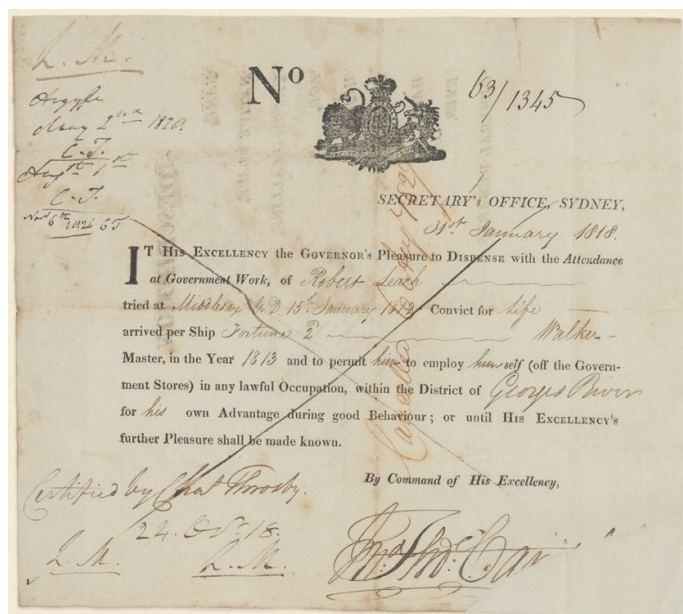 L. M.
Argyle
May 2nd 1820.
C. T.
Augst 1st
C. T.
Novr 6th 1826 CT
No 63/1345
SECRETARY'S OFFICE, SYDNEY,
31st January 1818.
IT HIS EXCELLENCY the GOVERNOR'S Pleasure to DISPENSE with the Attendance
at Government Work, of Robert Leach
tried at Middlesex G. D. 15th January 1812 Convict for Life
arrived per Ship Fortune 2 Walker
Master, in the Year 1813 and to permit him to employ himself (off the Govern-
ment Stores) in any lawful Occupation, within the District of Georges River
for his own Advantage during good Behaviour; or until HIS EXCELLENCY'S
further Pleasure shall be made known.
By Command of His Excellency,
Cancelled
Certified by Chas Throsby.
24. Oct. 18.
L. M. L. M.